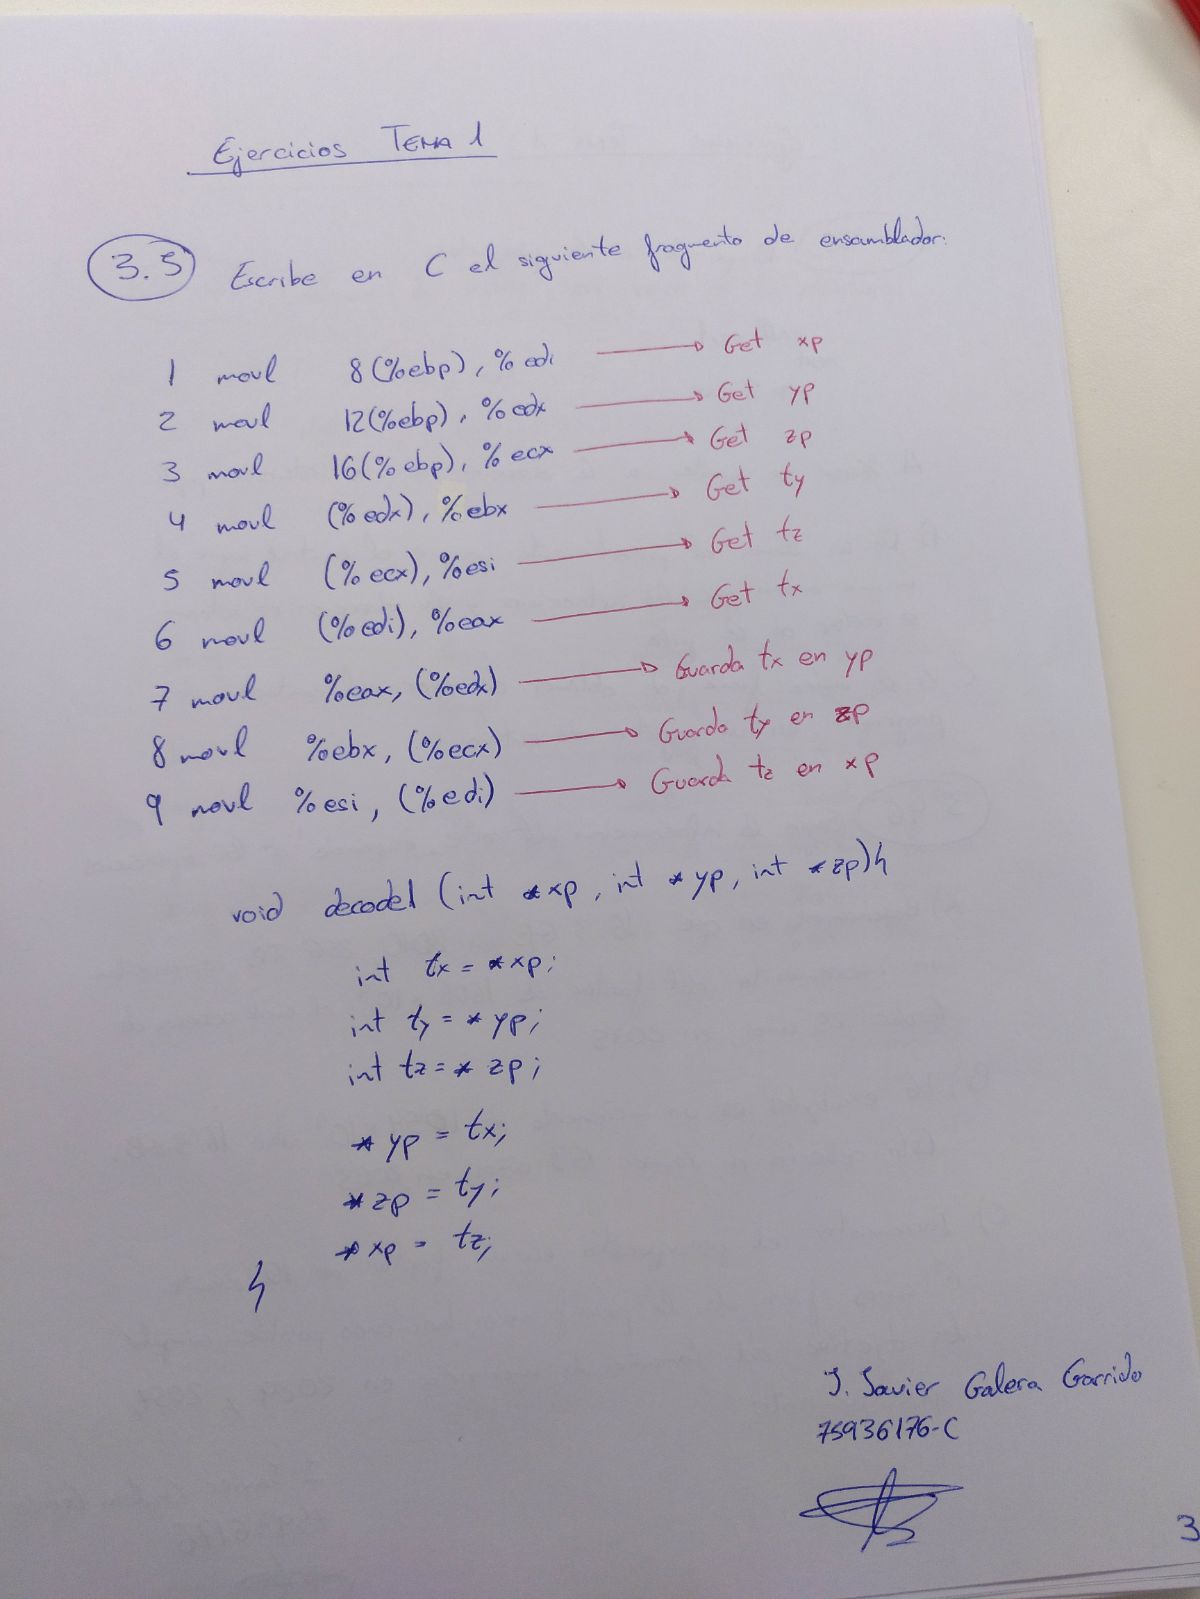 Ejercicios TEMA 1
3.5 Escribe en C el siguiente fragmento de ensamblador:
1 movl 8(%ebp), %edi → Get xp
2 movl 12(%ebp), %edx → Get yp
3 movl 16(%ebp), %ecx → Get zp
4 movl (%edx), %ebx → Get ty
5 movl (%ecx), %esi → Get tz
6 movl (%edi), %eax → Get tx
7 movl %eax, (%edx) → Guarda tx en yp
8 movl %ebx, (%ecx) → Guarda ty en zp
9 movl %esi, (%edi) → Guarda tz en xp
void decode1 (int *xp, int *yp, int *zp){
int tx = *xp;
int ty = *yp;
int tz = *zp;
*yp = tx;
*zp = ty;
*xp = tz;
}
J. Javier Galera Garrido
75936176-C
3